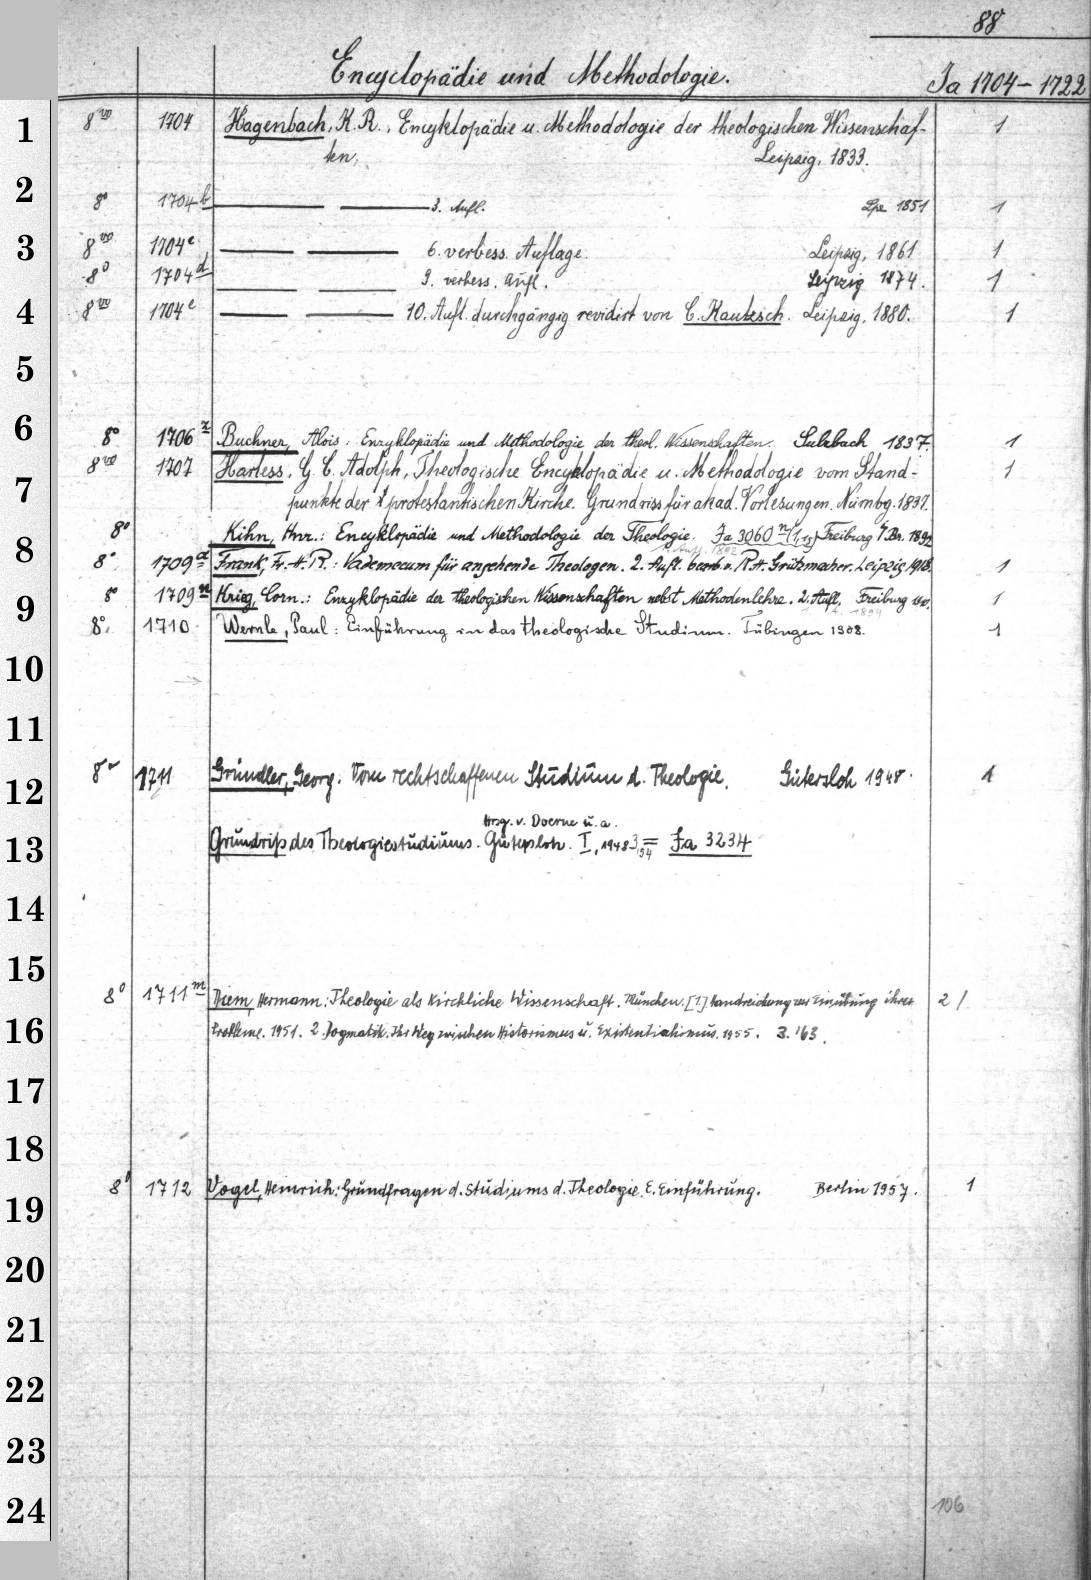 88
Encyclopädie und Methodologie. Ia 1704-1722
1 8vo 1704 Hagenbach, K. R., Encyklopädie u. Methodologie der theologischen Wissenschaf- 1
ten, Leipzig, 1833.
2 8° 1704b 3. Aufl. Lpz 1851 1
3 8vo 1704c 6. verbess. Auflage. Leipzig, 1861 1
8° 1704d 9. verbess. Aufl. Leipzig 1874. 1
4 8vo 1704e 10. Aufl. durchgängig revidirt von E. Kautzsch. Leipzig, 1880. 1
5
6 8° 1706z Buchner, Alois: Enzyklopädie und Methodologie der theol. Wissenschaften. Sulzbach 1837. 1
8vo 1707 Harless, G. C. Adolph, Theologische Encyklopädie u. Methodologie vom Stand- 1
7 punkte der protestantischen Kirche. Grundriss für akad. Vorlesungen. Nürnbg. 1837.
8° Kihn, Hnr.: Encyklopädie und Methodologie der Theologie. Ia 3060n (1,15) Freiburg i/Br. 1892
8 8° 1709d Frank, Fr. H. R.: Vademecum für angehende Theologen. 2. Aufl. bearb. v. R. H. Grützmacher. Leipzig 1918. 1
9 8° 1709n Krieg, Corn.: Enzyklopädie der theologischen Wissenschaften nebst Methodenlehre. 2. Aufl. Freiburg 1910. 1
8°. 1710 Wernle, Paul: Einführung in das theologische Studium. Tübingen 1908. 1
10
11
12 8° 1711 Gründler, Georg: Vom rechtschaffenen Studium d. Theologie. Gütersloh 1948. 1
Hrsg. v. Doerne u. a.
13 Grundriß des Theologiestudiums. Gütersloh. I, 1948 3, 54 = Ia 3234
14
15
8° 1711m Diem, Hermann: Theologie als kirchliche Wissenschaft. München. [1] Handreichung zur Einübung ihrer 2 /
16 Probleme. 1951. 2. Dogmatik. Ihr Weg zwischen Historismus u. Existentialismus. 1955. 3. '63.
17
18
8° 1712 Vogel, Heinrich: Grundfragen d. Studiums d. Theologie. E. Einführung. Berlin 1957. 1
19
20
21
22
23
24 106